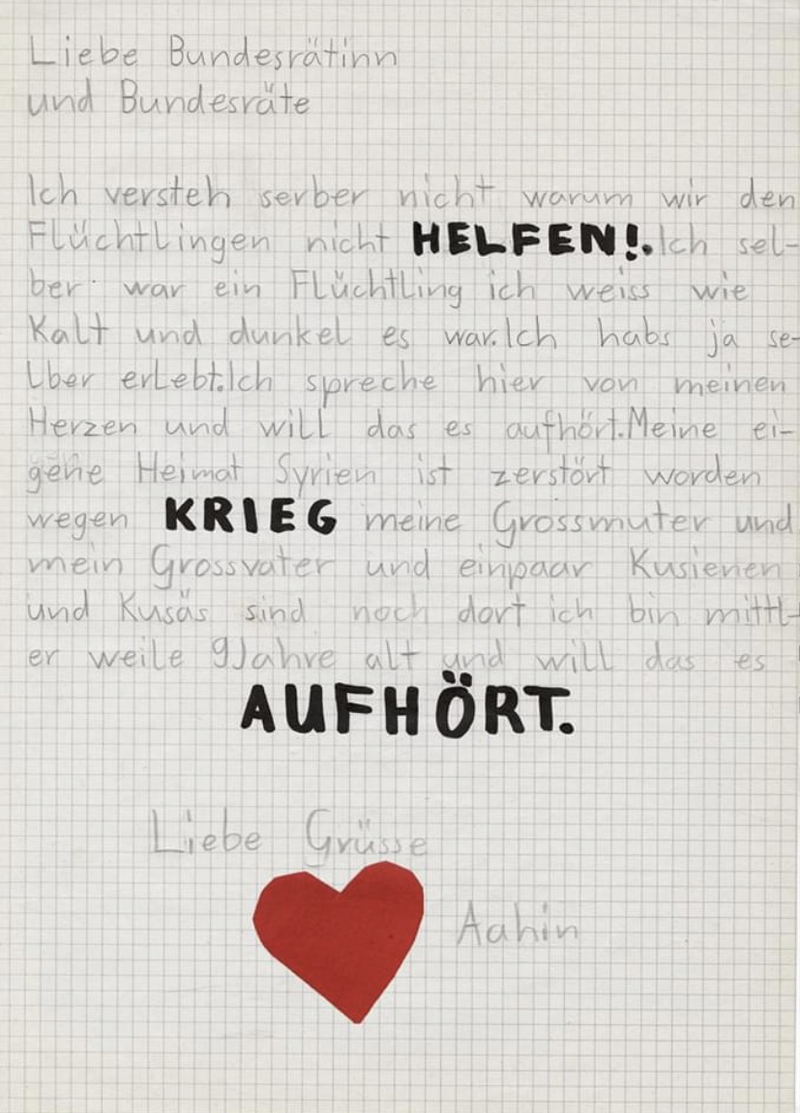 Liebe Bundesrätinn
und Bundesräte
Ich versteh serber nicht warum wir den
Flüchtlingen nicht HELFEN!.Ich sel-
ber war ein Flüchtling ich weiss wie
Kalt und dunkel es war.Ich habs ja se-
lber erlebt.Ich spreche hier von meinen
Herzen und will das es aufhört.Meine ei-
gene Heimat Syrien ist zerstört worden
wegen KRIEG meine Grossmuter und
mein Grossvater und einpaar Kusienen
und Kusäs sind noch dort ich bin mittl-
er weile 9Jahre alt und will das es
AUFHÖRT.
Liebe Grüsse
Aahin